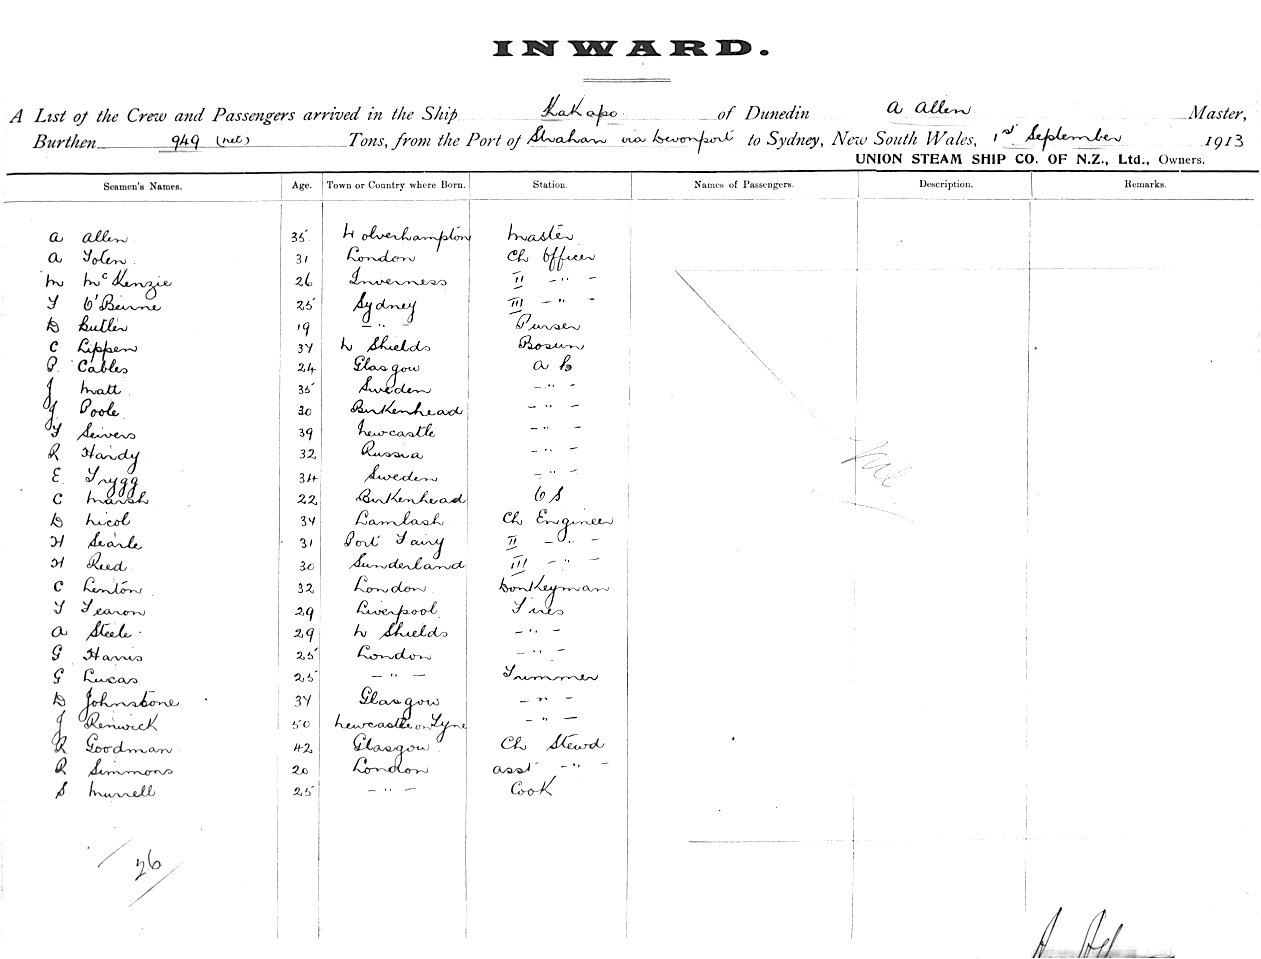 INWARD.
A List of the Crew and Passengers arrived in the Ship Kakapo of Dunedin A Allen Master,
Burthen 949 (net) Tons, from the Port of Strahan via Devonport to Sydney, New South Wales, 1st September 1913
UNION STEAM SHIP CO. OF N.Z., Ltd., Owners.
Seamen's Names. Age. Town or Country where Born. Station. Names of Passengers. Description. Remarks.
A Allen 35 Wolverhampton Master
A 31 London Ch Officer
M McKenzie 26 Inverness II - " -
F O'Beirne 25 Sydney III - " -
D Butler 19 - " - Purser
C Lippen 37 N Shields Bosun
P Cables 24 Glasgow A B
J Matt 35 Sweden - " -
J Poole 30 Birkenhead - " -
F Seivers 39 Newcastle - " -
R Hardy 32 Russia - " -
E Trygg 34 Sweden - " -
C Marsh 22 Birkenhead O S
D Nicol 37 Lamlash Ch Engineer
H Searle 31 Port Fairy II - " -
H Reed 30 Sunderland III - " -
C Lenton 32 London Donkeyman
T Fearon 29 Liverpool Fires
A Steele 29 N Shields - " -
G Harris 25 London - " -
G Lucas 25 - " - Trimmer
D Johnstone 37 Glasgow - " -
J Renwick 50 Newcastle on Tyne - " -
R Goodman 42 Glasgow Ch Stewd
R Simmons 20 London asst - " -
S Murrell 25 - " - Cook
26